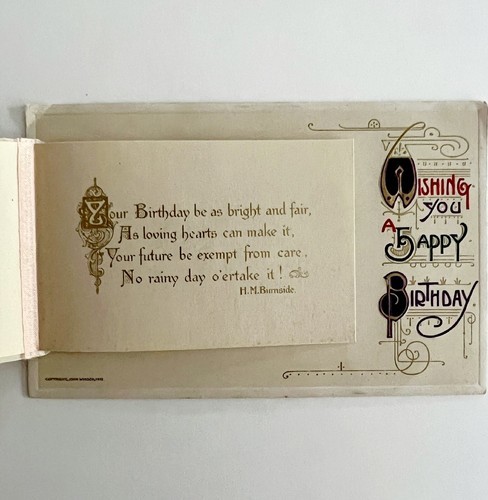 Your Birthday be as bright and fair,
As loving hearts can make it,
Your future be exempt from care,
No rainy day o'ertake it!
H.M.Burnside.
WISHING
you
A HAPPY
BIRTHDAY
COPYRIGHTED, JOHN WINSCH, 1912